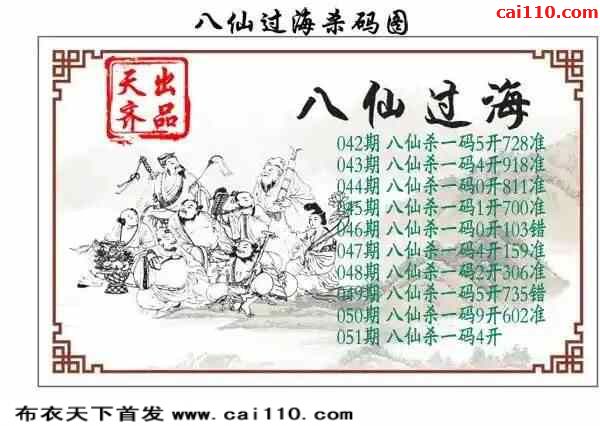 八仙过海杀码图
cai110.com
天齐
出品
八仙过海
042期 八仙杀一码5开728准
043期 八仙杀一码4开918准
044期 八仙杀一码0开811准
045期 八仙杀一码1开700准
046期 八仙杀一码0开103错
047期 八仙杀一码4开159准
048期 八仙杀一码2开306准
049期 八仙杀一码5开735错
050期 八仙杀一码9开602准
051期 八仙杀一码4开
布衣天下首发 www.cai110.com